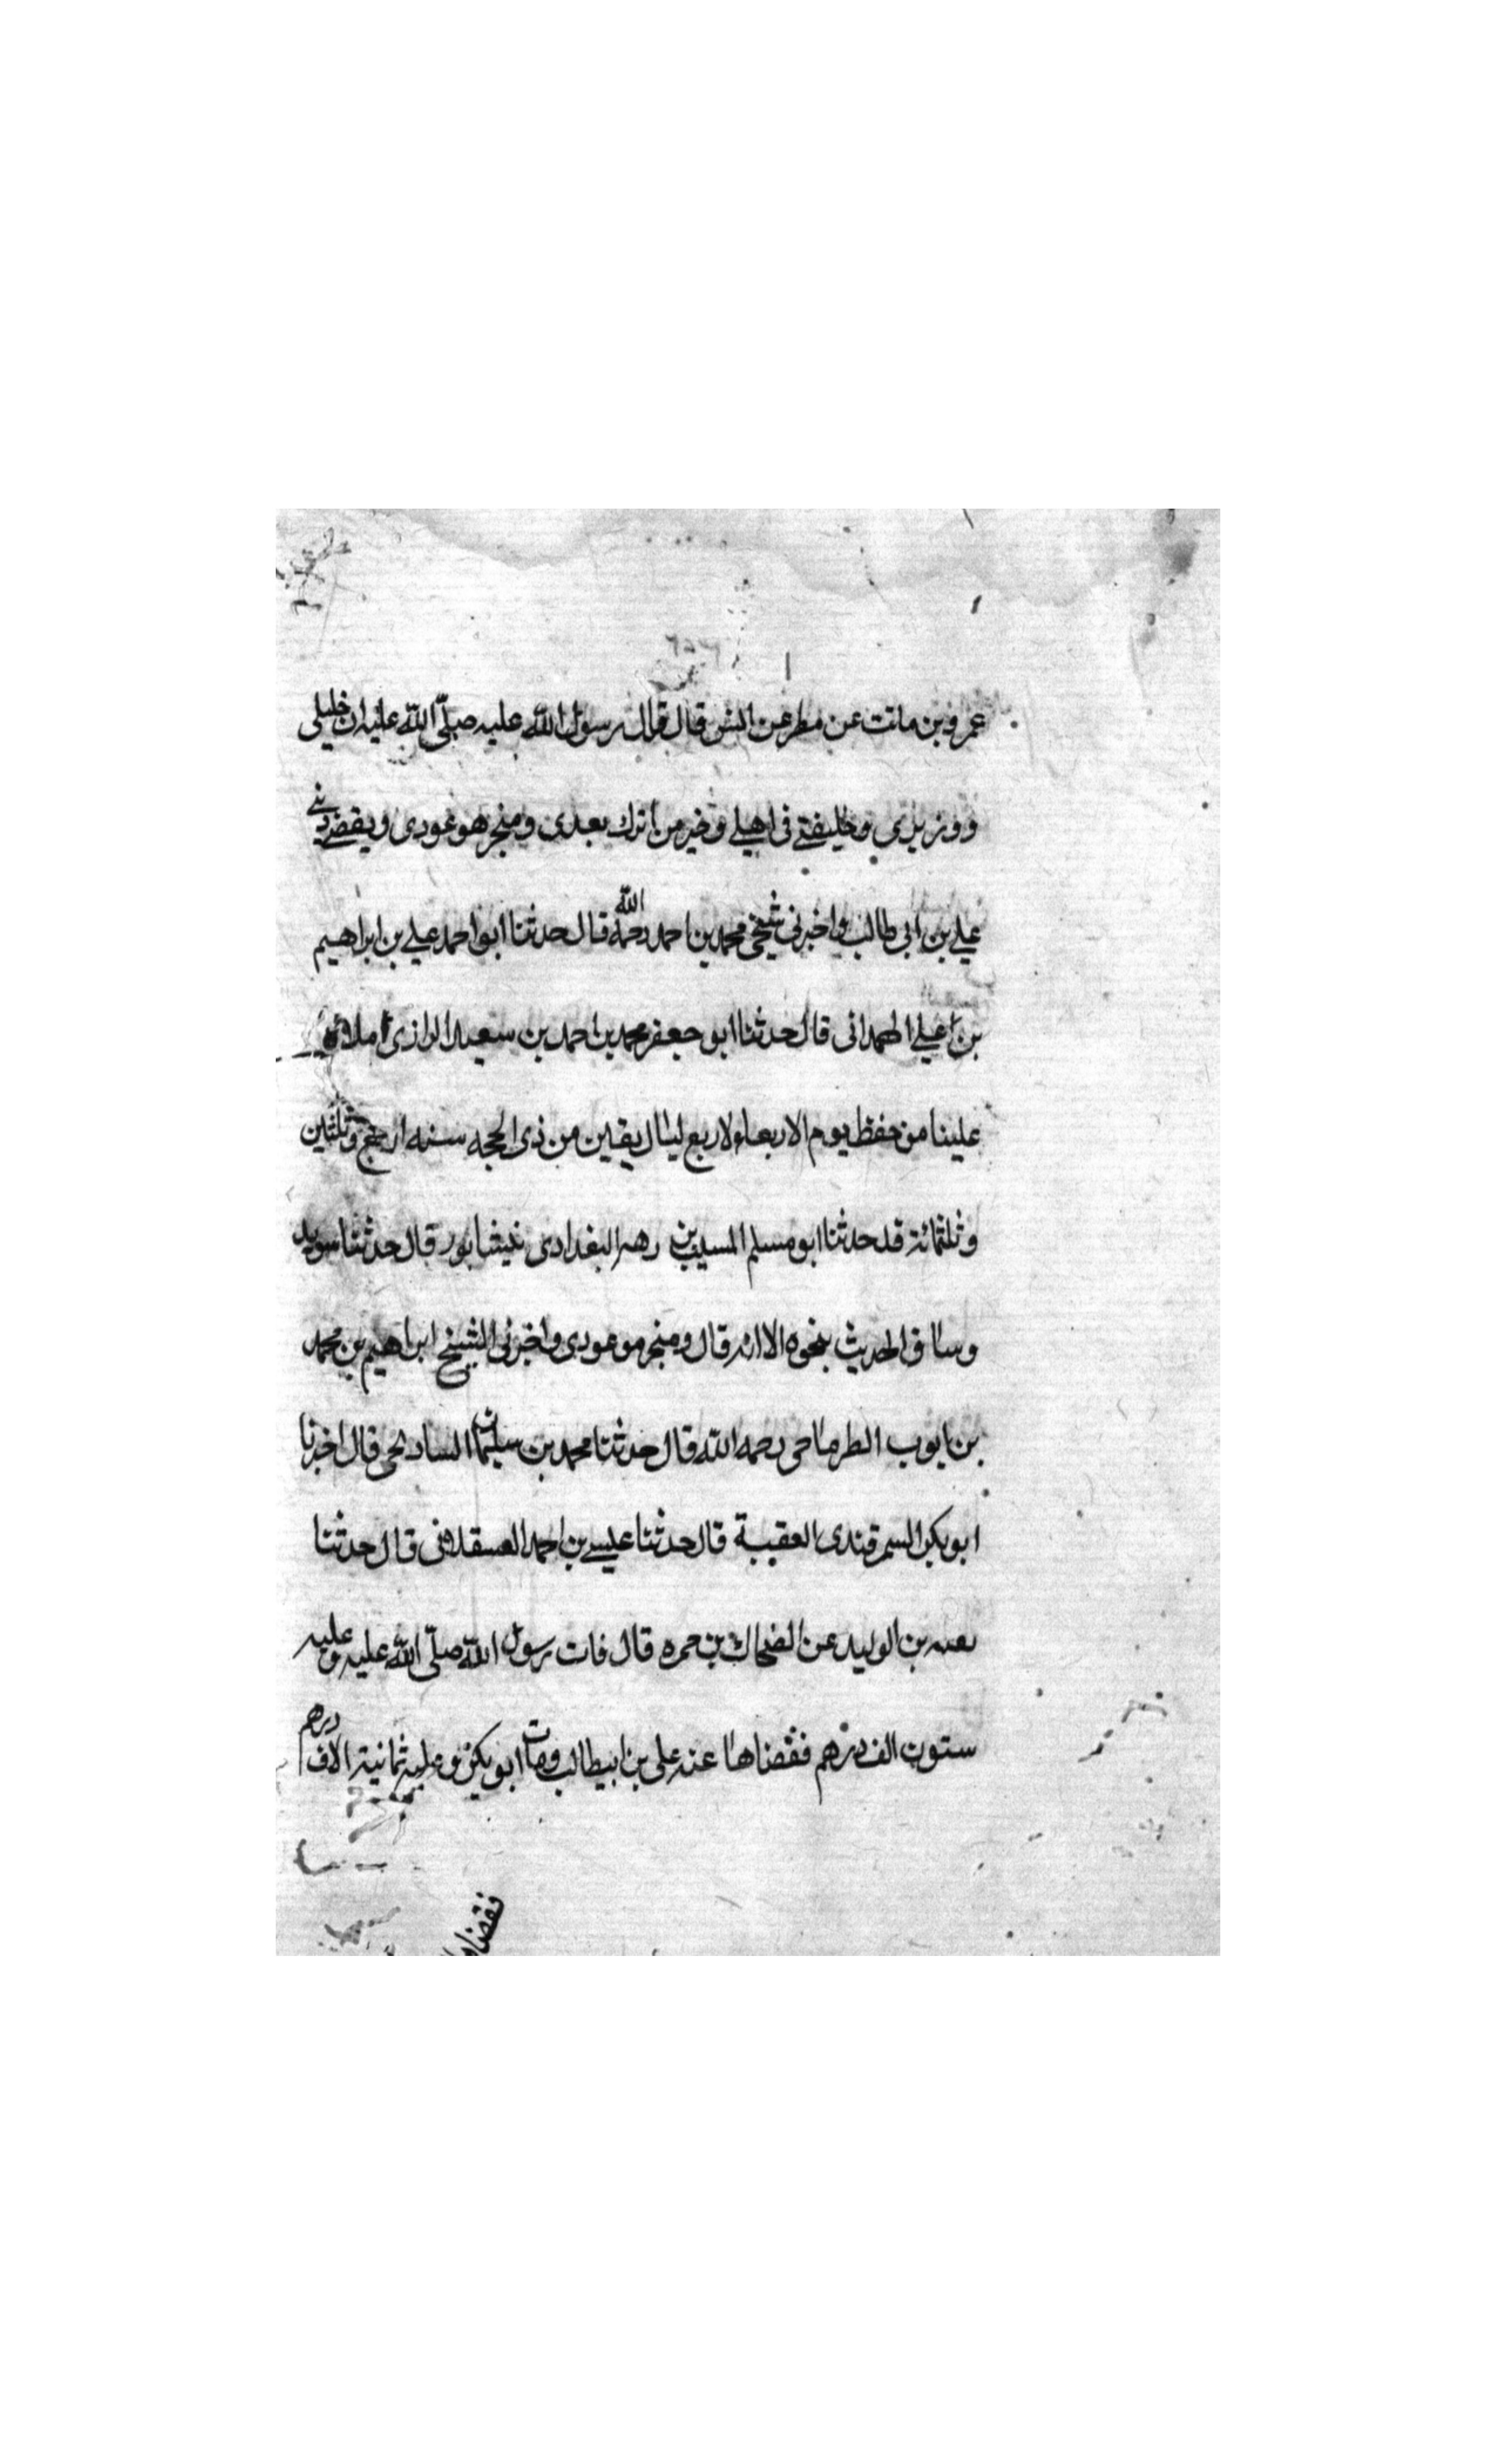 عمرو بن مانت عن مطر عن انس قال قال رسول الله عليه صلّى الله عليه ان خليلى
ووزيرى وخليفتى فى اهلى وخير من اترك بعدى ومنجز هو عودى ويقضى دينى
على بن ابى طالب واخبرنى شيخى محمد بن احمد رحمه الله قال حدثنا ابو احمد على بن ابراهيم
بن على الهمدانى قال حدثنا ابو جعفر محمد بن احمد بن سعيد الرازى املاه
علينا من حفظ يوم الاربعاء لاربع ليال بقين من ذى الحجه سنه اربع وثلثين
وثلثمائة قد حدثنا ابو مسلم المسيب بن زهير البغدادى نيشابور قال حدثنا سويد
وساق الحديث بنحوه الا انه قال ومنجز موعودى واخبرنى الشيخ ابراهيم بن محمد
بن ايوب الطرماحى رحمه الله قال حدثنا محمد بن سليمان قال اخبرنا
ابو بكر السمرقندى العقبية قال حدثنا عيسى بن احمد العسقلانى قال حدثنا
بن الوليد عن الضحاك بن حمره قال فات رسول الله صلّى الله عليه وعليه
ستون الف درهم فقضاها عنه على بن ابيطالب ومات ابو بكر وعليه ثمانية الاف درهم
فقضاها